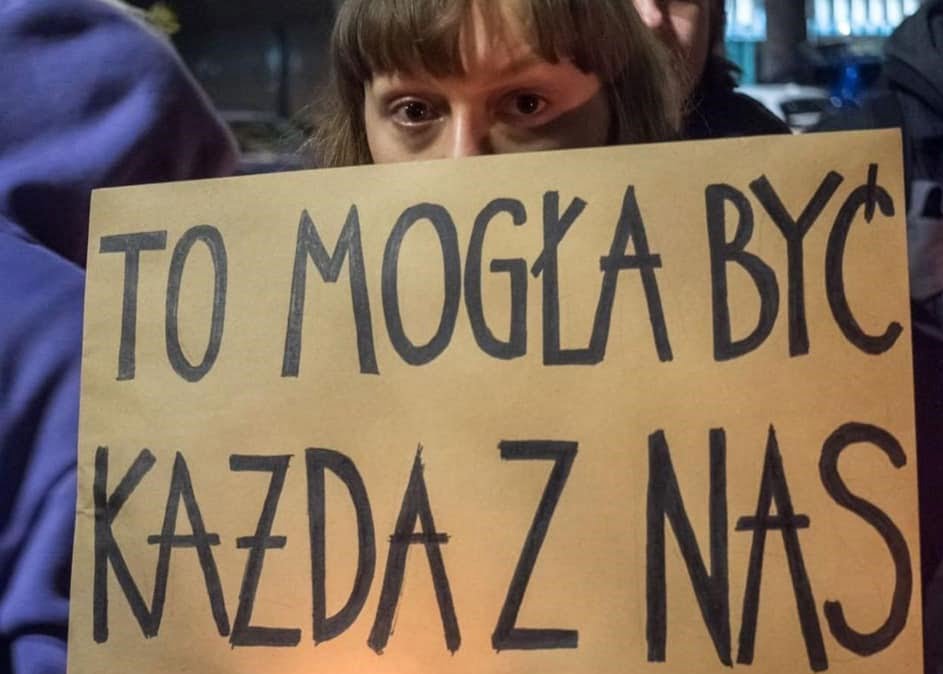 TO MOGŁA BYĆ
KAƵDA Z NAS